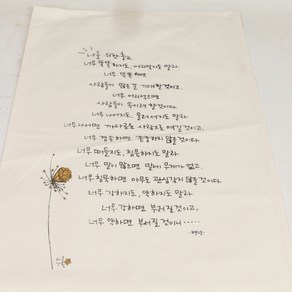 나를 위한 충고
너무 똑똑하지도, 어리석지도 말라
너무 똑똑하면
사람들이 많은걸 기대할것이고
너무 어리석으면
사람들이 속이려 할것이다
너무 나서지도, 물러서지도 말라
너무 나서면 가벼운 사람으로 여길것이고,
너무 겸손하면 존중하지 않을것이다
너무 떠들지도, 침묵하지도 말라
너무 말이 많으면 말이 무게가 없고,
너무 침묵하면 아무도 관심갖지 않을것이다
너무 강하지도, 약하지도 말라
너무 강하면 부러질것이고,
너무 약하면 부서질것이니·····